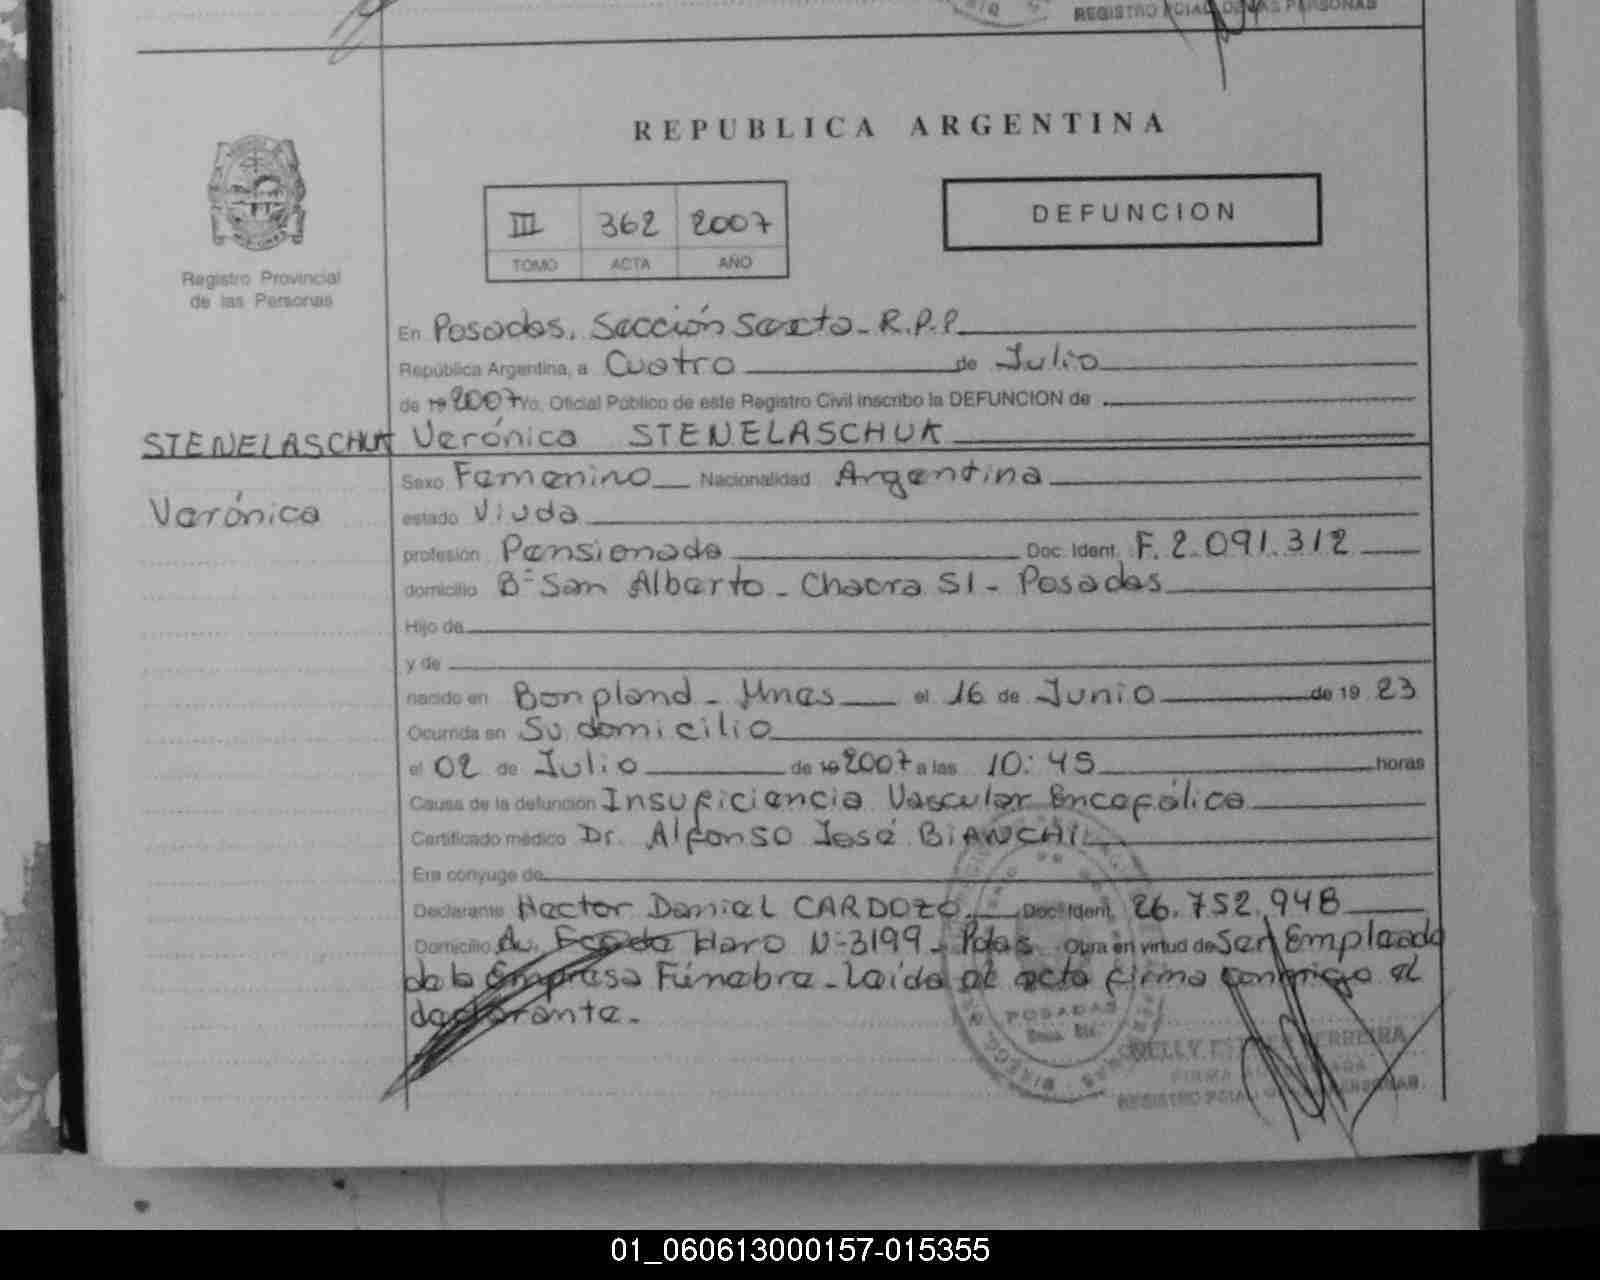 REGISTRO PCIAL DE LAS PERSONAS
REPUBLICA ARGENTINA
III 362 2007
TOMO ACTA AÑO
DEFUNCION
Registro Provincial
de las Personas
En Posadas, Sección Sexta - R.P.P.
República Argentina, a Cuatro de Julio
de 19 2007 Yo, Oficial Público de este Registro Civil inscribo la DEFUNCION de
STENELASCHUK Verónica STENELASCHUK
Verónica
Sexo Femenino Nacionalidad Argentina
estado Viuda
profesión Pensionada Doc. Ident. F. 2.091.312
domicilio Bº San Alberto - Chacra 51 - Posadas
Hijo de
y de
nacido en Bonpland - Mnes el 16 de Junio de 19 23
Ocurrida en Su domicilio
el 02 de Julio de 19 2007 a las 10:45 horas
Causa de la defunción Insuficiencia Vascular Encefálica
Certificado médico Dr. Alfonso José BIANCHI
Era conyuge de
Declarante Hector Daniel CARDOZO Doc. Ident. 26.752.948
Domicilio Av. Fcode Haro Nº 3199 - Pdas Obra en virtud de Ser Empleado
de la Empresa Fúnebre - Leída el acta firma conmigo el
declarante.
POSADAS
FERREIRA
REGISTRO PCIAL PERSONAS
01_060613000157-015355